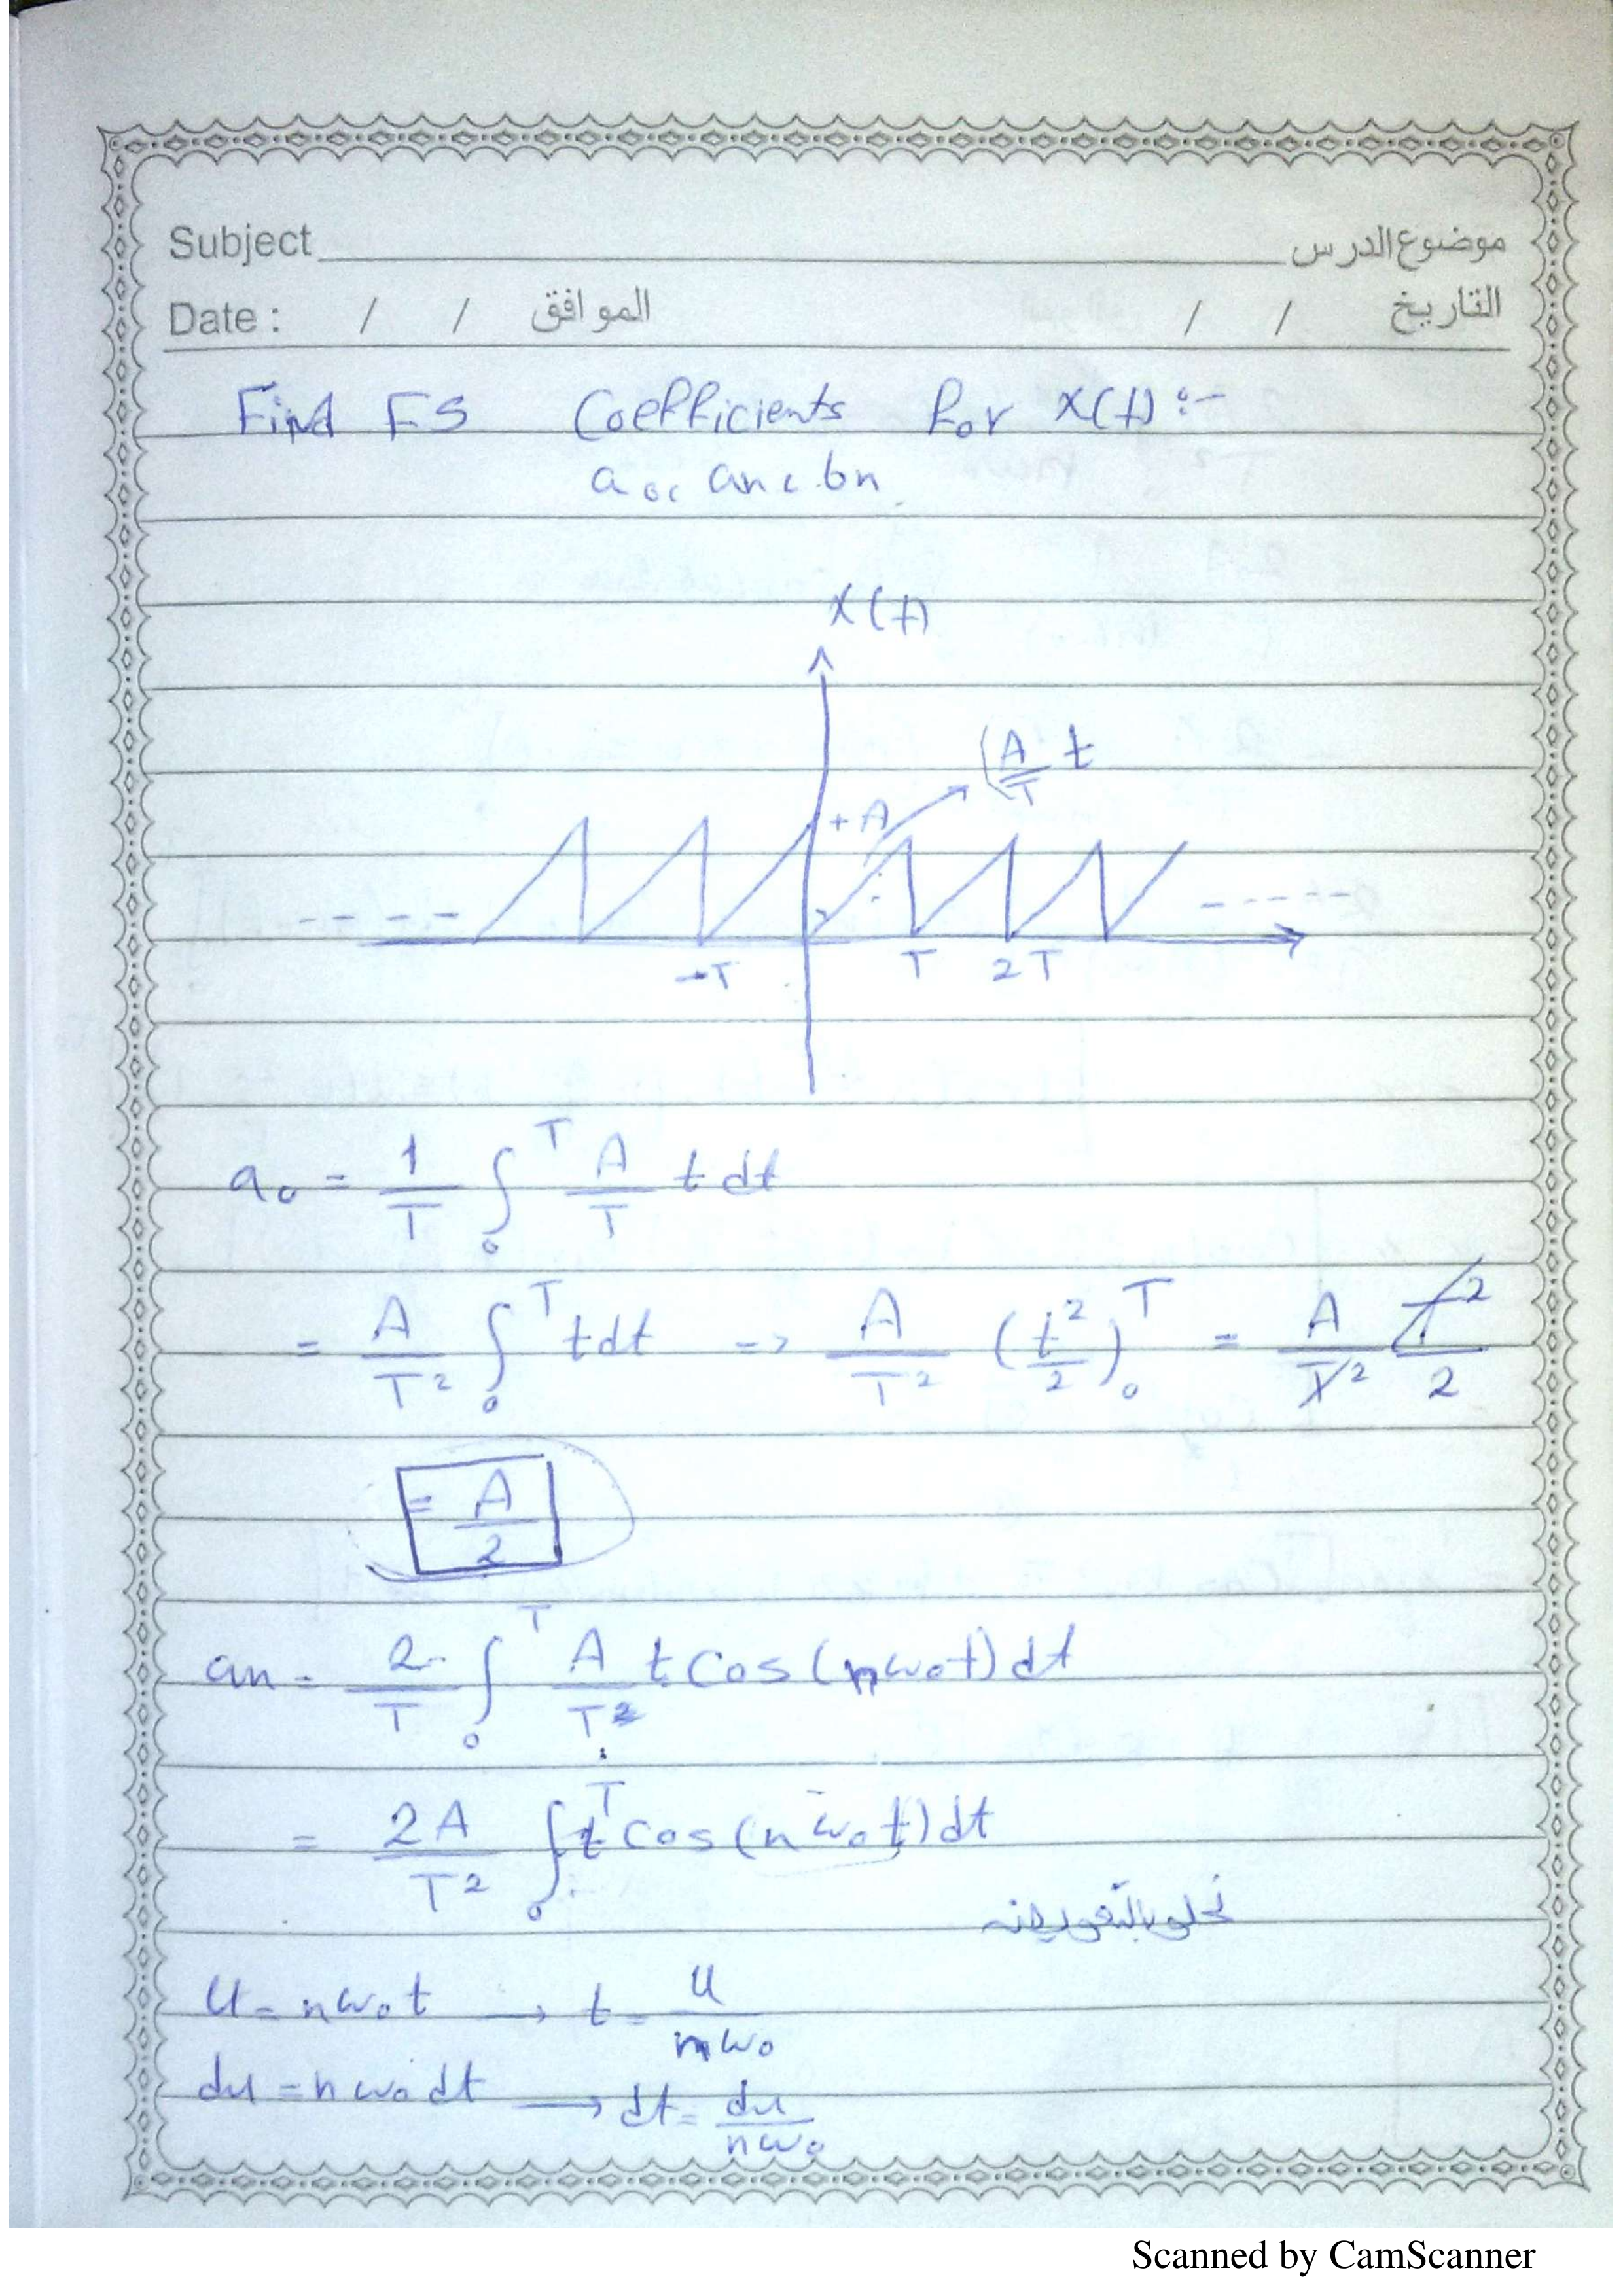 Subject موضوع الدرس
Date : / / الموافق / / التاريخ
Find FS Coefficients for x(t) :-
a0, an, bn
x(t)
(A/T t
+A
-T T 2T
a0 = 1/T ∫₀ᵀ A/T t dt
= A/T² ∫₀ᵀ t dt => A/T² (t²/2)₀ᵀ = A/T² T²/2
= A/2
an = 2/T ∫₀ᵀ A/T² t cos(nω₀t) dt
= 2A/T² ∫₀ᵀ t cos(nω₀t) dt
u = nω₀t → t = u/nω₀
du = nω₀ dt → dt = du/nω₀
Scanned by CamScanner